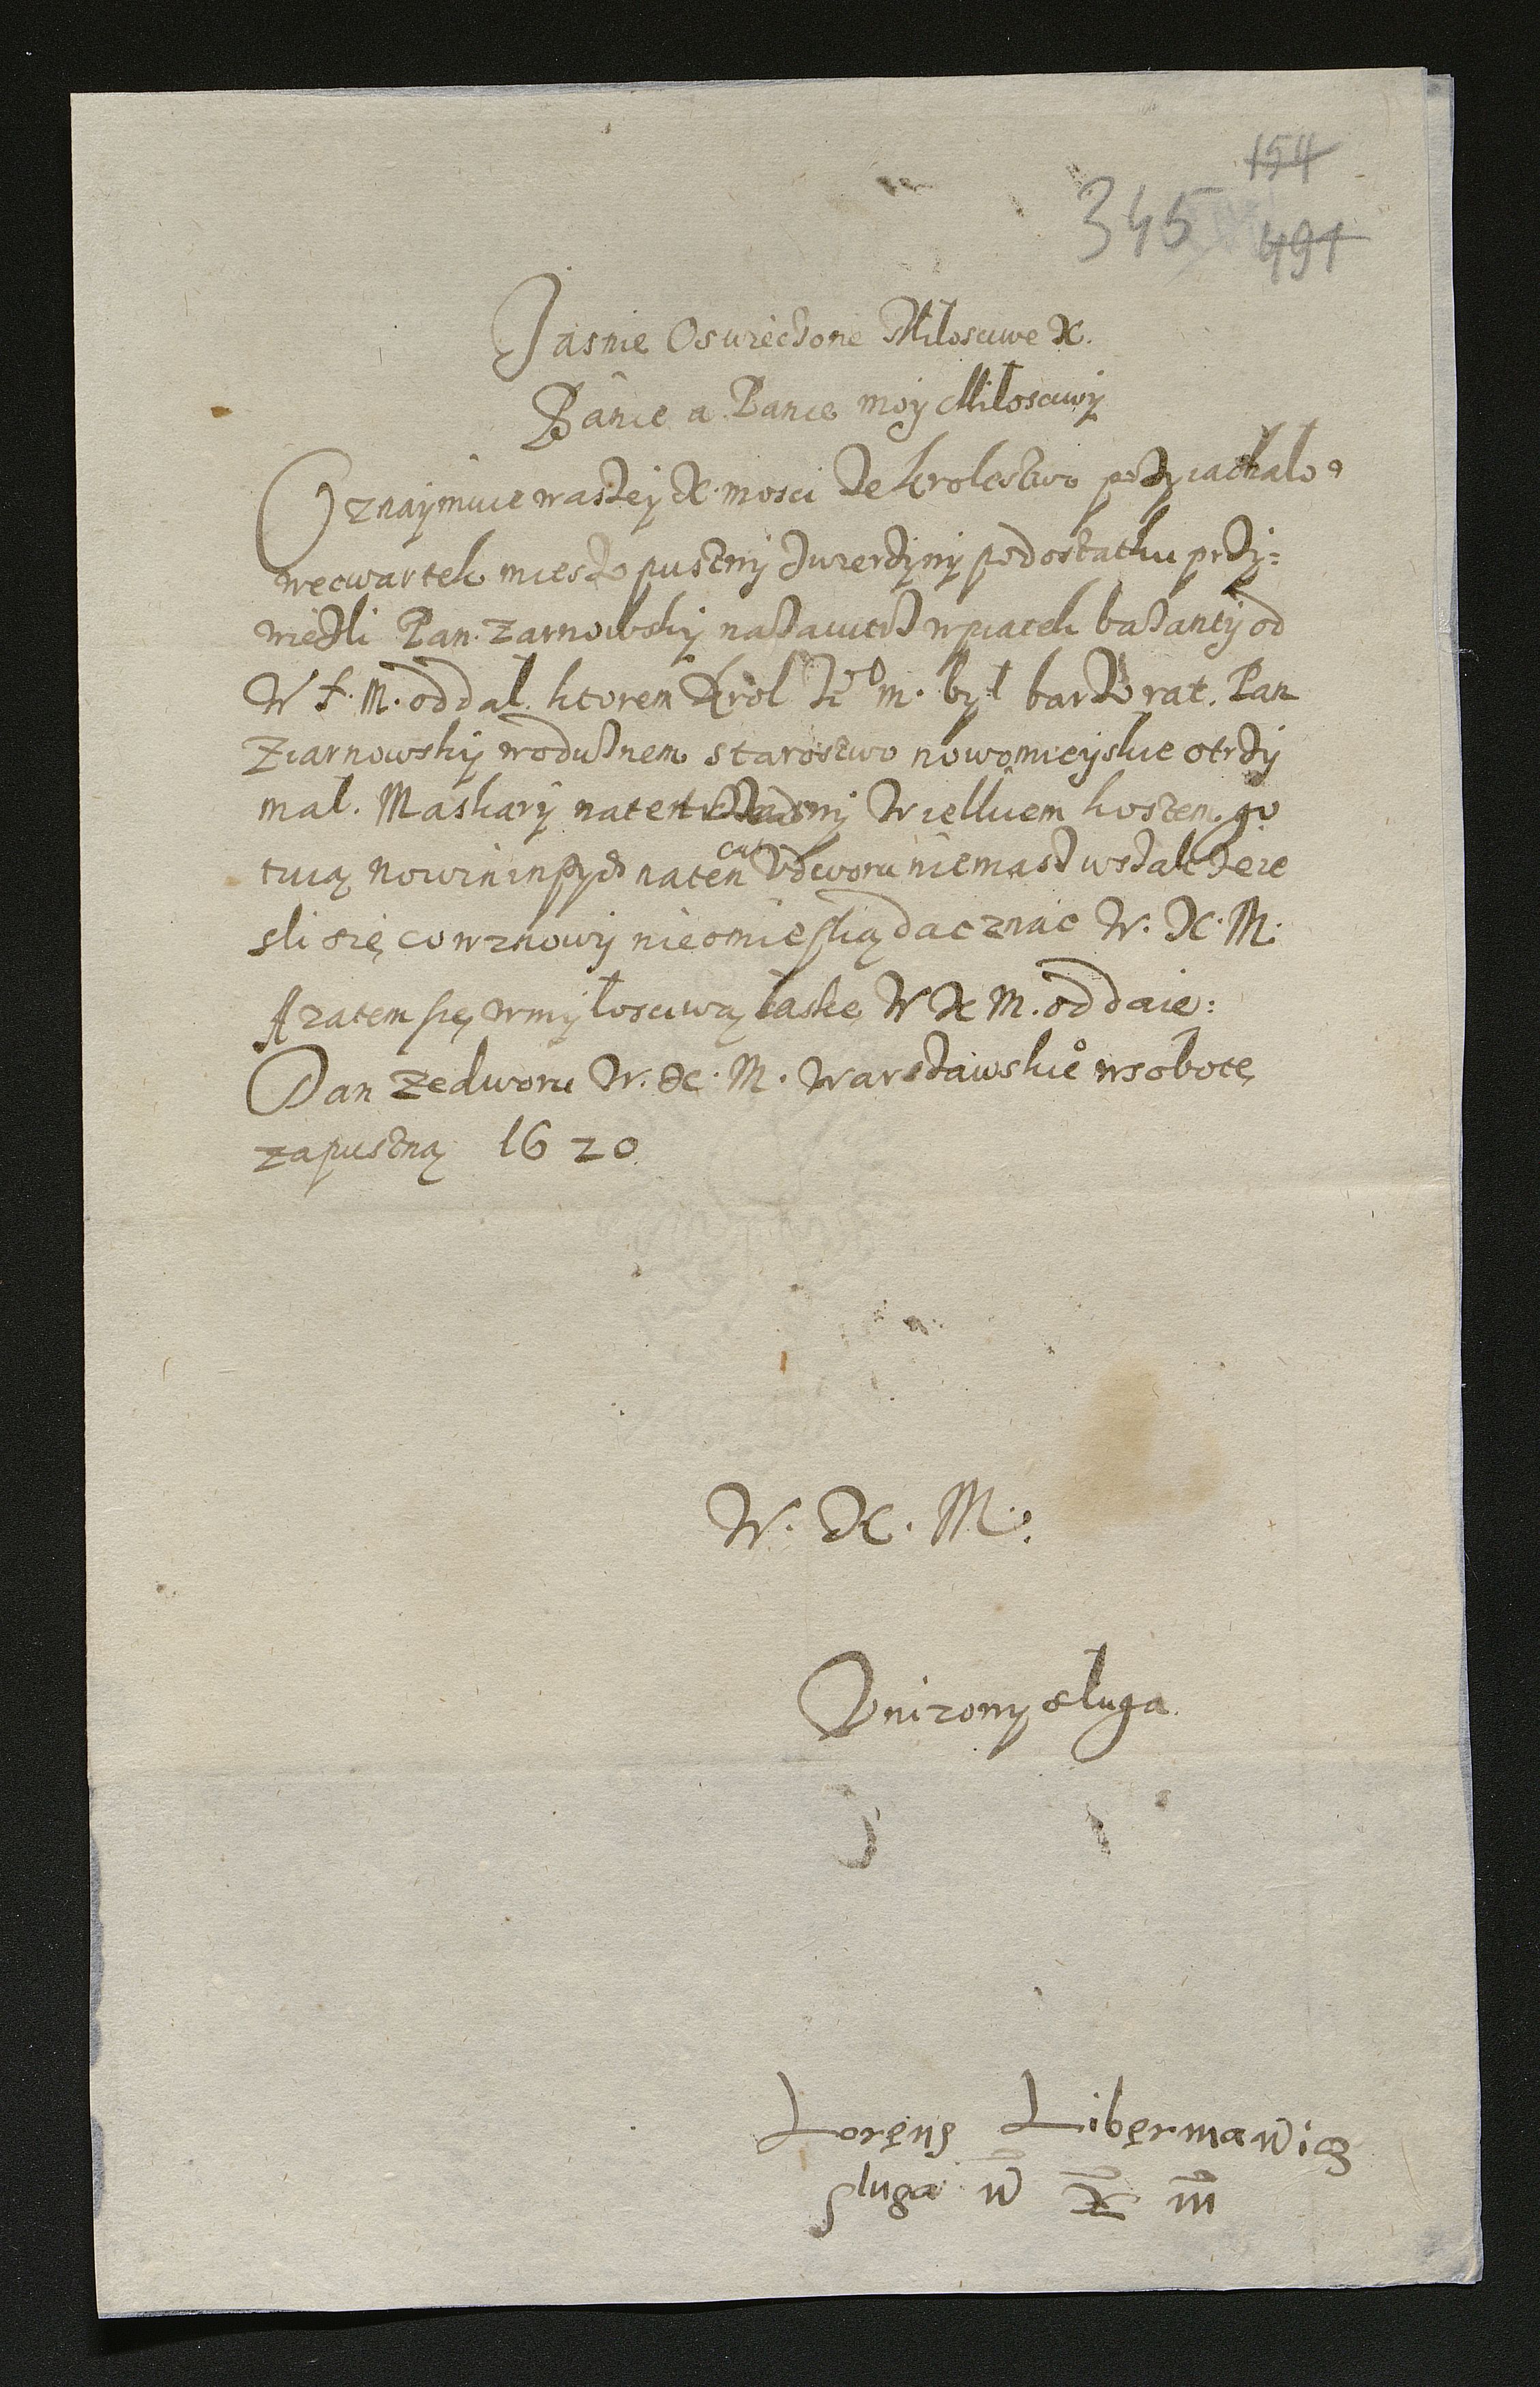 154
345 491
Jasnie Oswiećzone Miłosciwe X.
Panie a Panie moy Miłosciwy
Oznaymuie waszey X. mosci ze krolestwo przyiachało
wecwartek miesopustny zwierzyny podostatku przy:
wiezli Pan. Zarnowsky nazaiutrz wpiatek bazanty od
W X. M. oddal. ktorem Krol Je° m. był barzo rat. Pan
Ziarnowsky wodusnem starostwo nowomieyskie otrzy
mal. Maskary naten wielkiem kostem go
tuią nowin inszych naten cas Vdworu niemasz wszakze ie
sli się co wznowy nieomieskią dac znac W. X. M.
A zatem się w myłosciwą łaske W X M. oddaie:
Dan zedworu W. X. M. Warszawskie° wsobotę
zapustną 1620
W. X. M.
Vnizony sluga
Lorens Libermawicz
sluga w X m